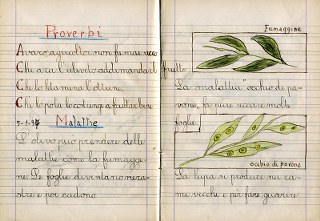 Proverbi
Avaro agricoltor non fu mai ricco
Chi ara l'uliveto addomanda il frutto
Chi lo letamina l'ottiene
Chi lo pota lo costringe a fruttar bene
Malattie
L'olivo può prendere delle
malattie come la fumaggi-
ne. Le foglie diventano nera-
stre e poi cadono
Fumaggine
La malattia "occhio di pa-
vone" fa pure seccare molte
foglie
occhio di pavone
La lupa si produce nei ra-
mi vecchi e per fare guarire